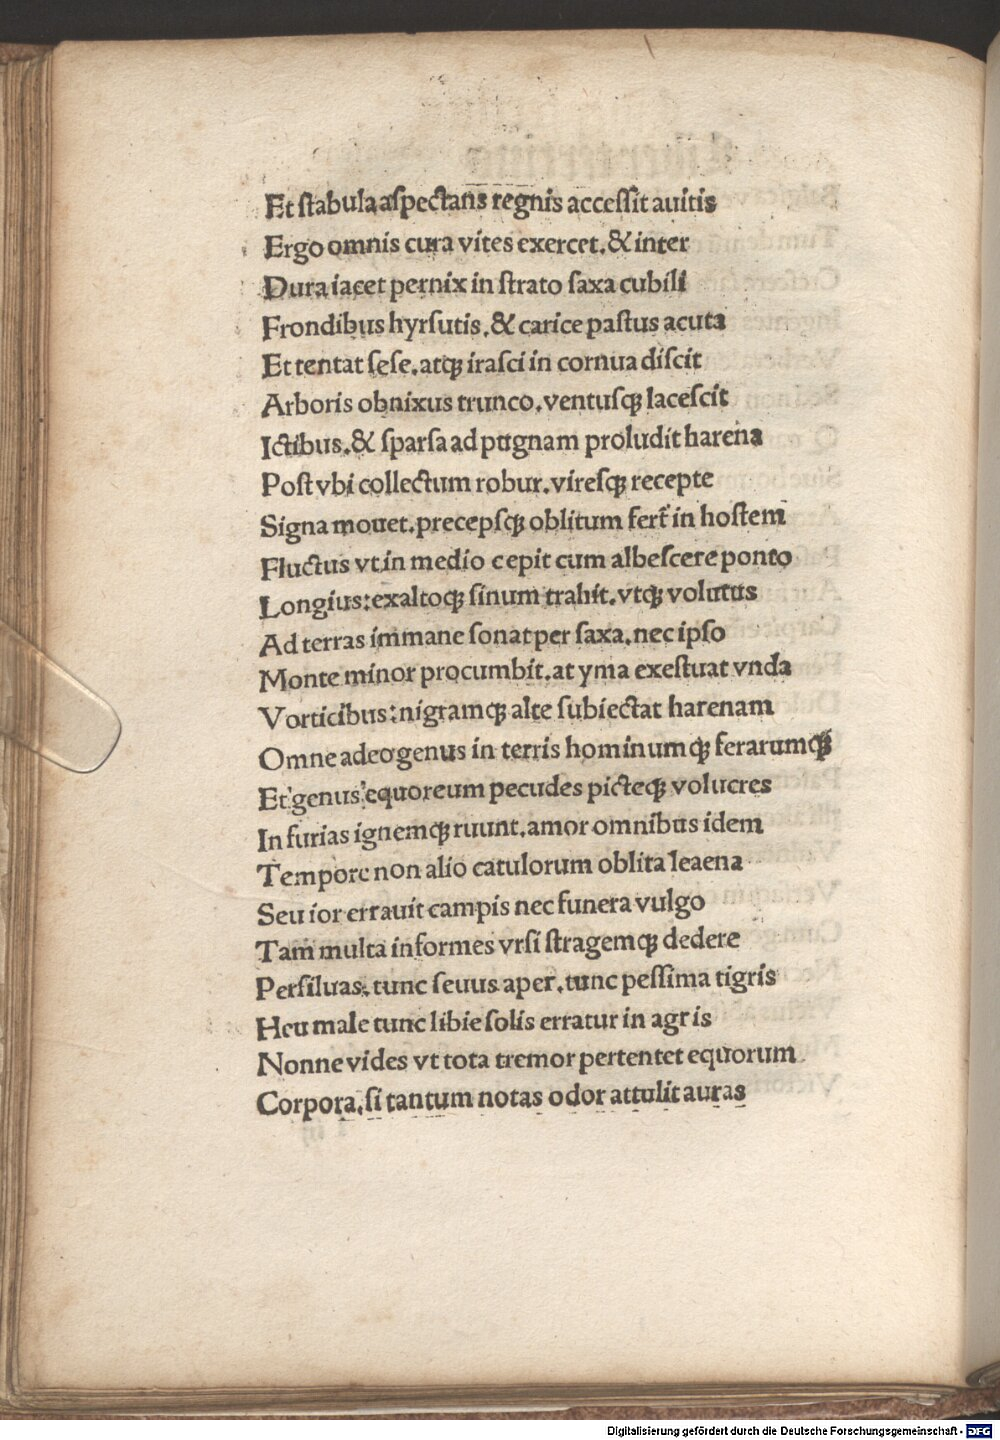 Et ſtabula aſpectans regnis acceſſit auitis
Ergo omnis cura vites exercet. & inter
Dura iacet pernix in ſtrato ſaxa cubili
Frondibus hyrſutis. & carice paſtus acuta
Et tentat ſeſe. atqꝫ iraſci in cornua diſcit
Arboris obnixus trunco. ventuſqꝫ laceſcit
Ictibus. & ſparſa ad pugnam proludit harena
Poſt vbi collectum robur. vireſqꝫ recepte
Signa mouet. precepſqꝫ oblitum fert̉ in hoſtem
Fluctus vt in medio cepit cum albeſcere ponto
Longius: exaltoqꝫ ſinum trahit. vtqꝫ volutus
Ad terras immane ſonat per ſaxa. nec ipſo
Monte minor procumbit. at yma exeſtuat vnda
Vorticibus: nigramqꝫ alte ſubiectat harenam
Omne adeo genus in terris hominumqꝫ ferarumqꝫ
Et genus equoreum pecudes picteqꝫ volucres
In furias ignemqꝫ ruunt. amor omnibus idem
Tempore non alio catulorum oblita leaena
Seu ior errauit campis nec funera vulgo
Tam multa informes vrſi ſtragemqꝫ dedere
Per ſiluas. tunc ſeuus aper. tunc peſſima tigris
Heu male tunc libie ſolis erratur in agris
Nonne vides vt tota tremor pertentet equorum
Corpora. ſi tantum notas odor attulit auras
Digitalisierung gefördert durch die Deutsche Forschungsgemeinschaft - DFG